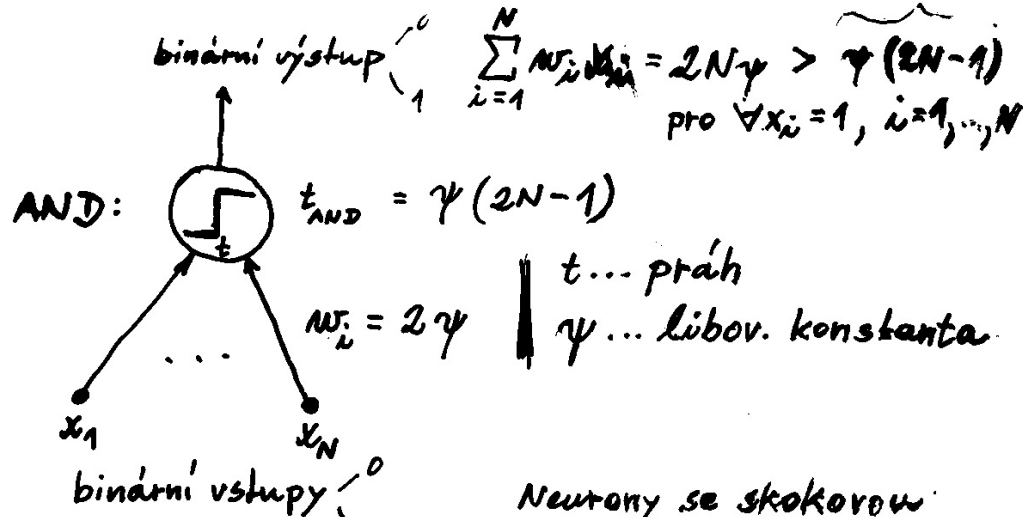 binární výstup 0 1
N ∑ i=1 w_i x_i = 2Nψ > ψ(2N-1)
pro ∀x_i = 1, i=1,...,N
AND:
t
t_AND = ψ(2N-1)
t... práh
w_i = 2ψ
ψ... libov. konstanta
. . .
x_1 x_N
binární vstupy 0
Neurony se skokovou